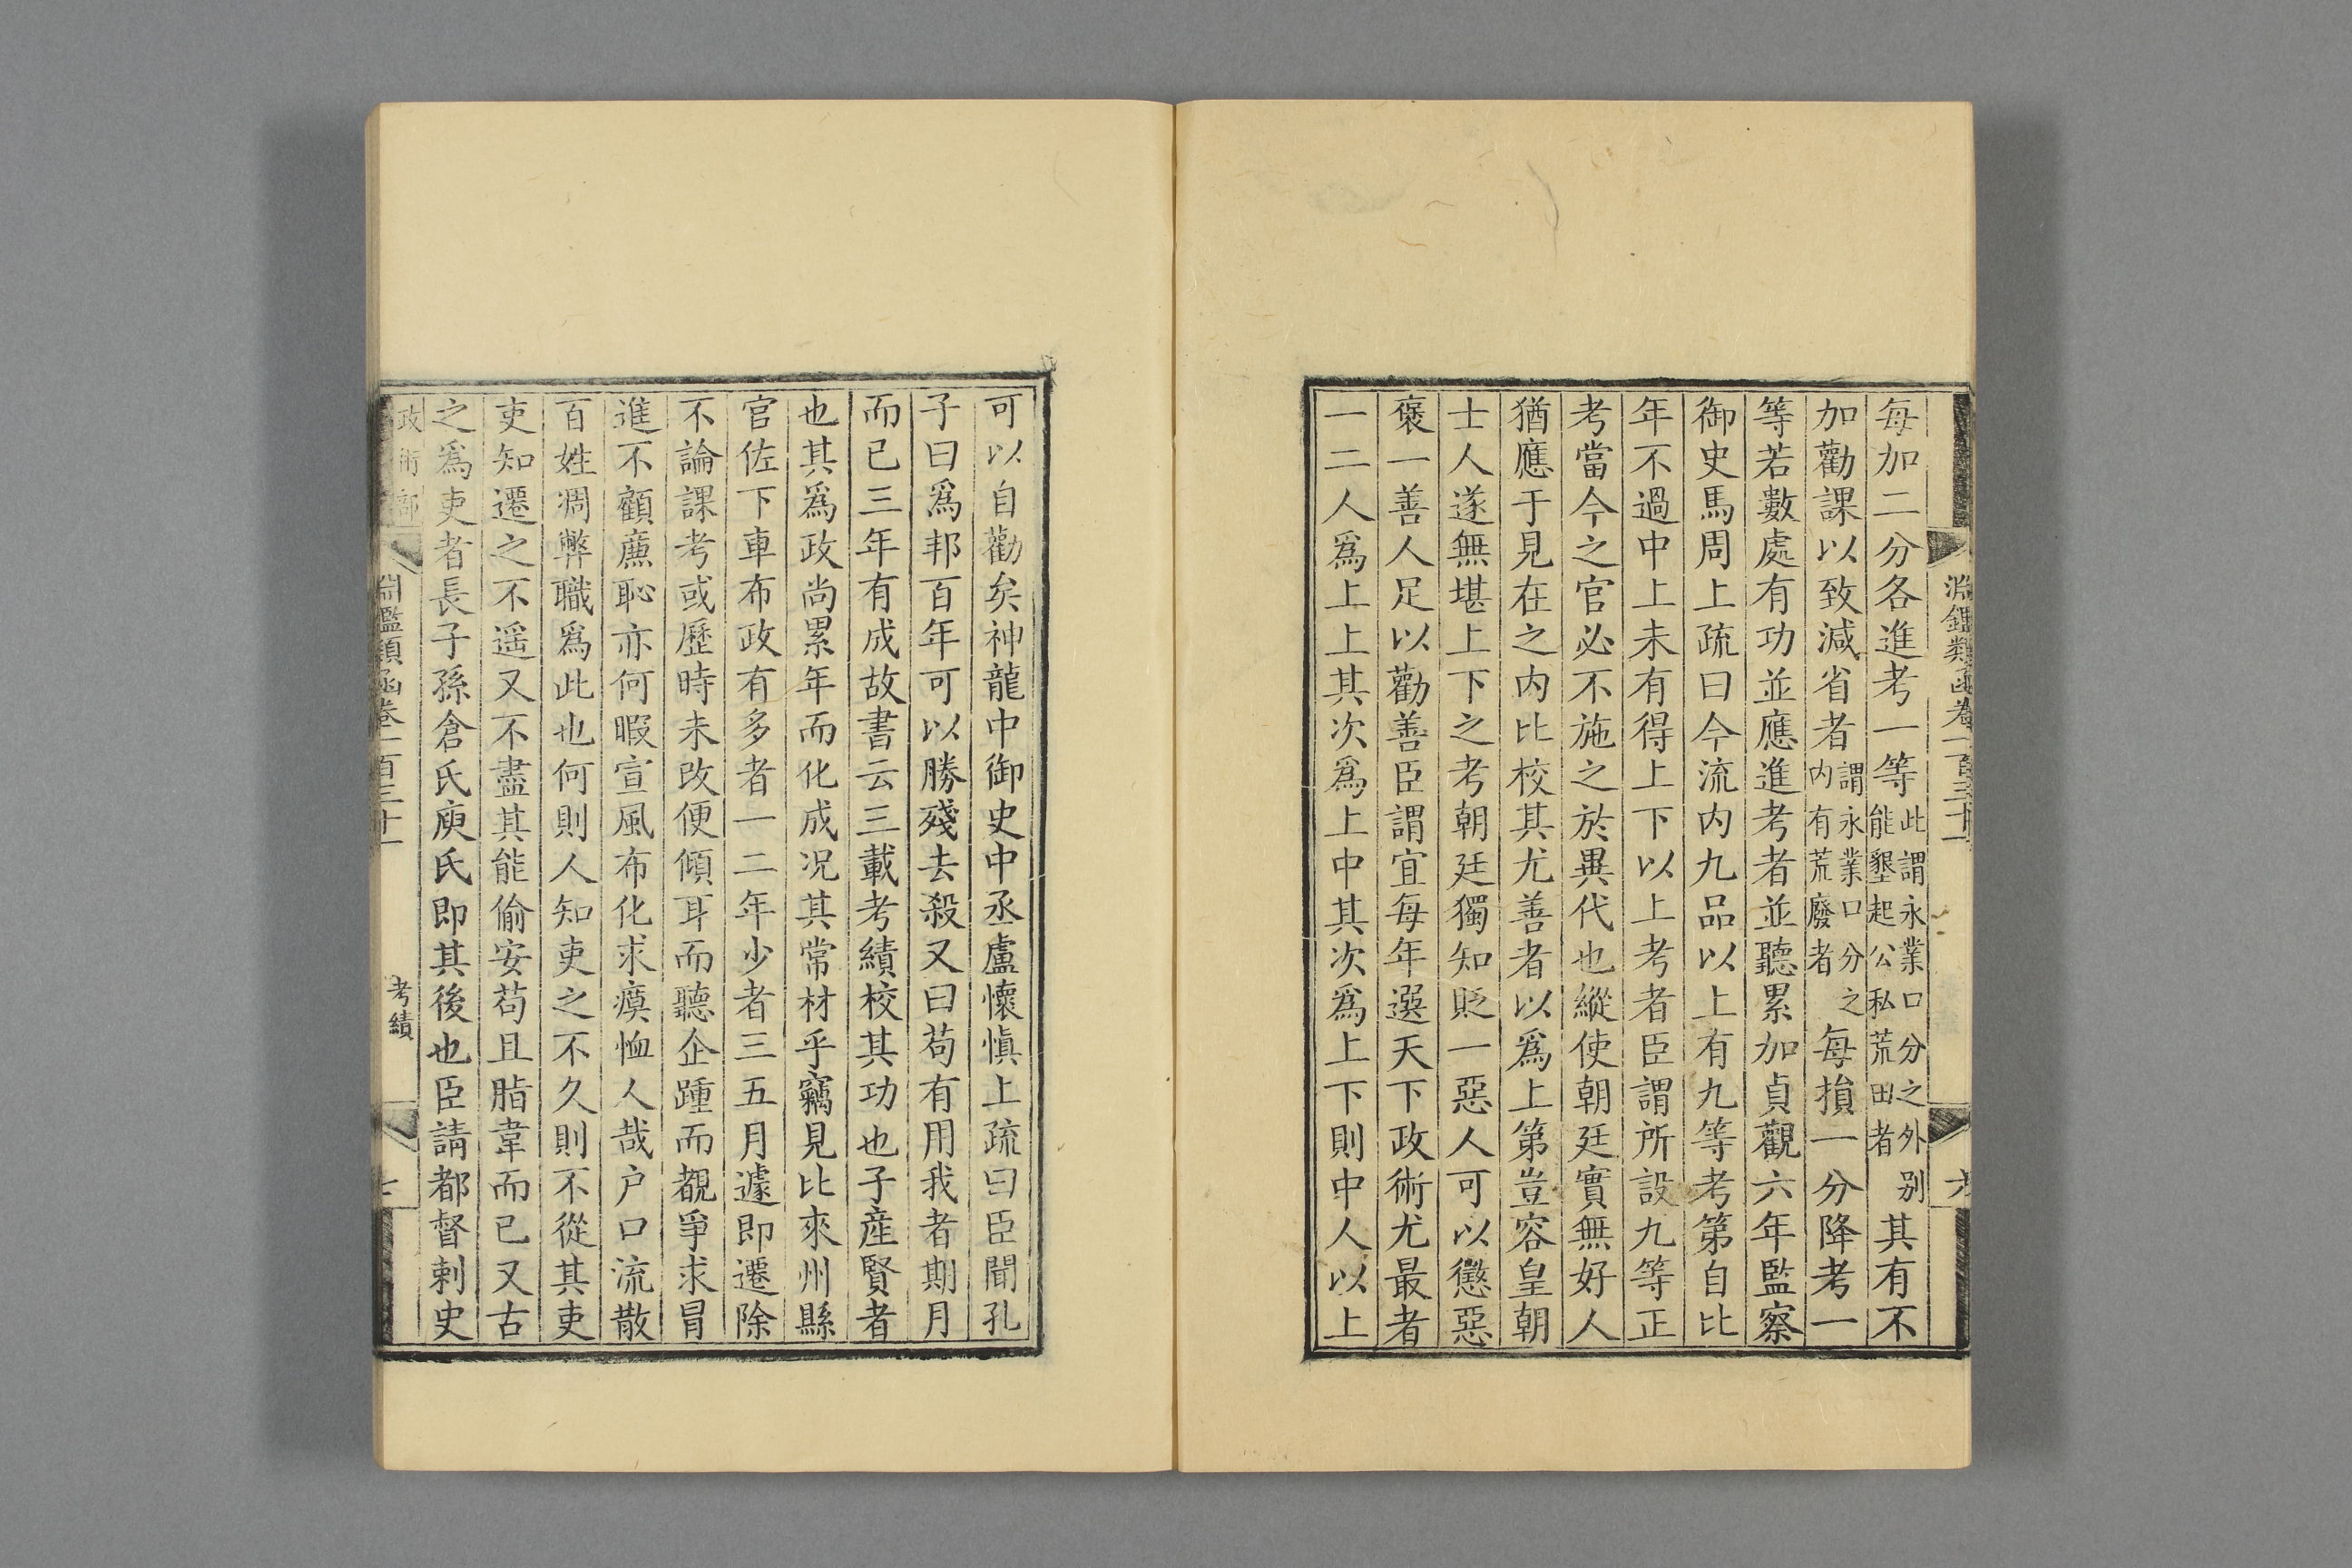 淵鑑類函卷一百三十一
每加二分各進考一等此謂永業口分之外別能墾起公私荒田者其有不
加勸課以致減省者謂永業口分之內有荒廢者每損一分降考一
等若數處有功並應進考者並聽累加貞觀六年監察
御史馬周上疏曰今流内九品以上有九等考第自比
年不過中上未有得上下以上考者臣謂所設九等正
考當今之官必不施之於異代也縱使朝廷實無好人
猶應于見在之内比校其尤善者以爲上第豈容皇朝
士人遂無堪上下之考朝廷獨知貶一惡人可以懲惡
褒一善人足以勸善臣謂宜每年選天下政術尤最者
一二人爲上上其次爲上中其次爲上下則中人以上
可以自勸矣神龍中御史中丞盧懷慎上疏曰臣聞孔
子曰爲邦百年可以勝殘去殺又曰苟有用我者期月
而已三年有成故書云三載考績校其功也子產賢者
也其爲政尚累年而化成況其常材乎竊見比來州縣
官佐下車布政有多者一二年少者三五月遽即遷除
不論課考或歷時未改便傾耳而聽企踵而覩爭求冒
進不顧廉恥亦何暇宣風布化求瘼恤人哉户口流散
百姓凋弊職爲此也何則人知吏之不久則不從其吏
吏知遷之不遥又不盡其能偷安苟且脂韋而已又古
之爲吏者長子孫倉氏庾氏即其後也臣請都督刺史
政術部
淵鑑類函卷一百三十一
考績